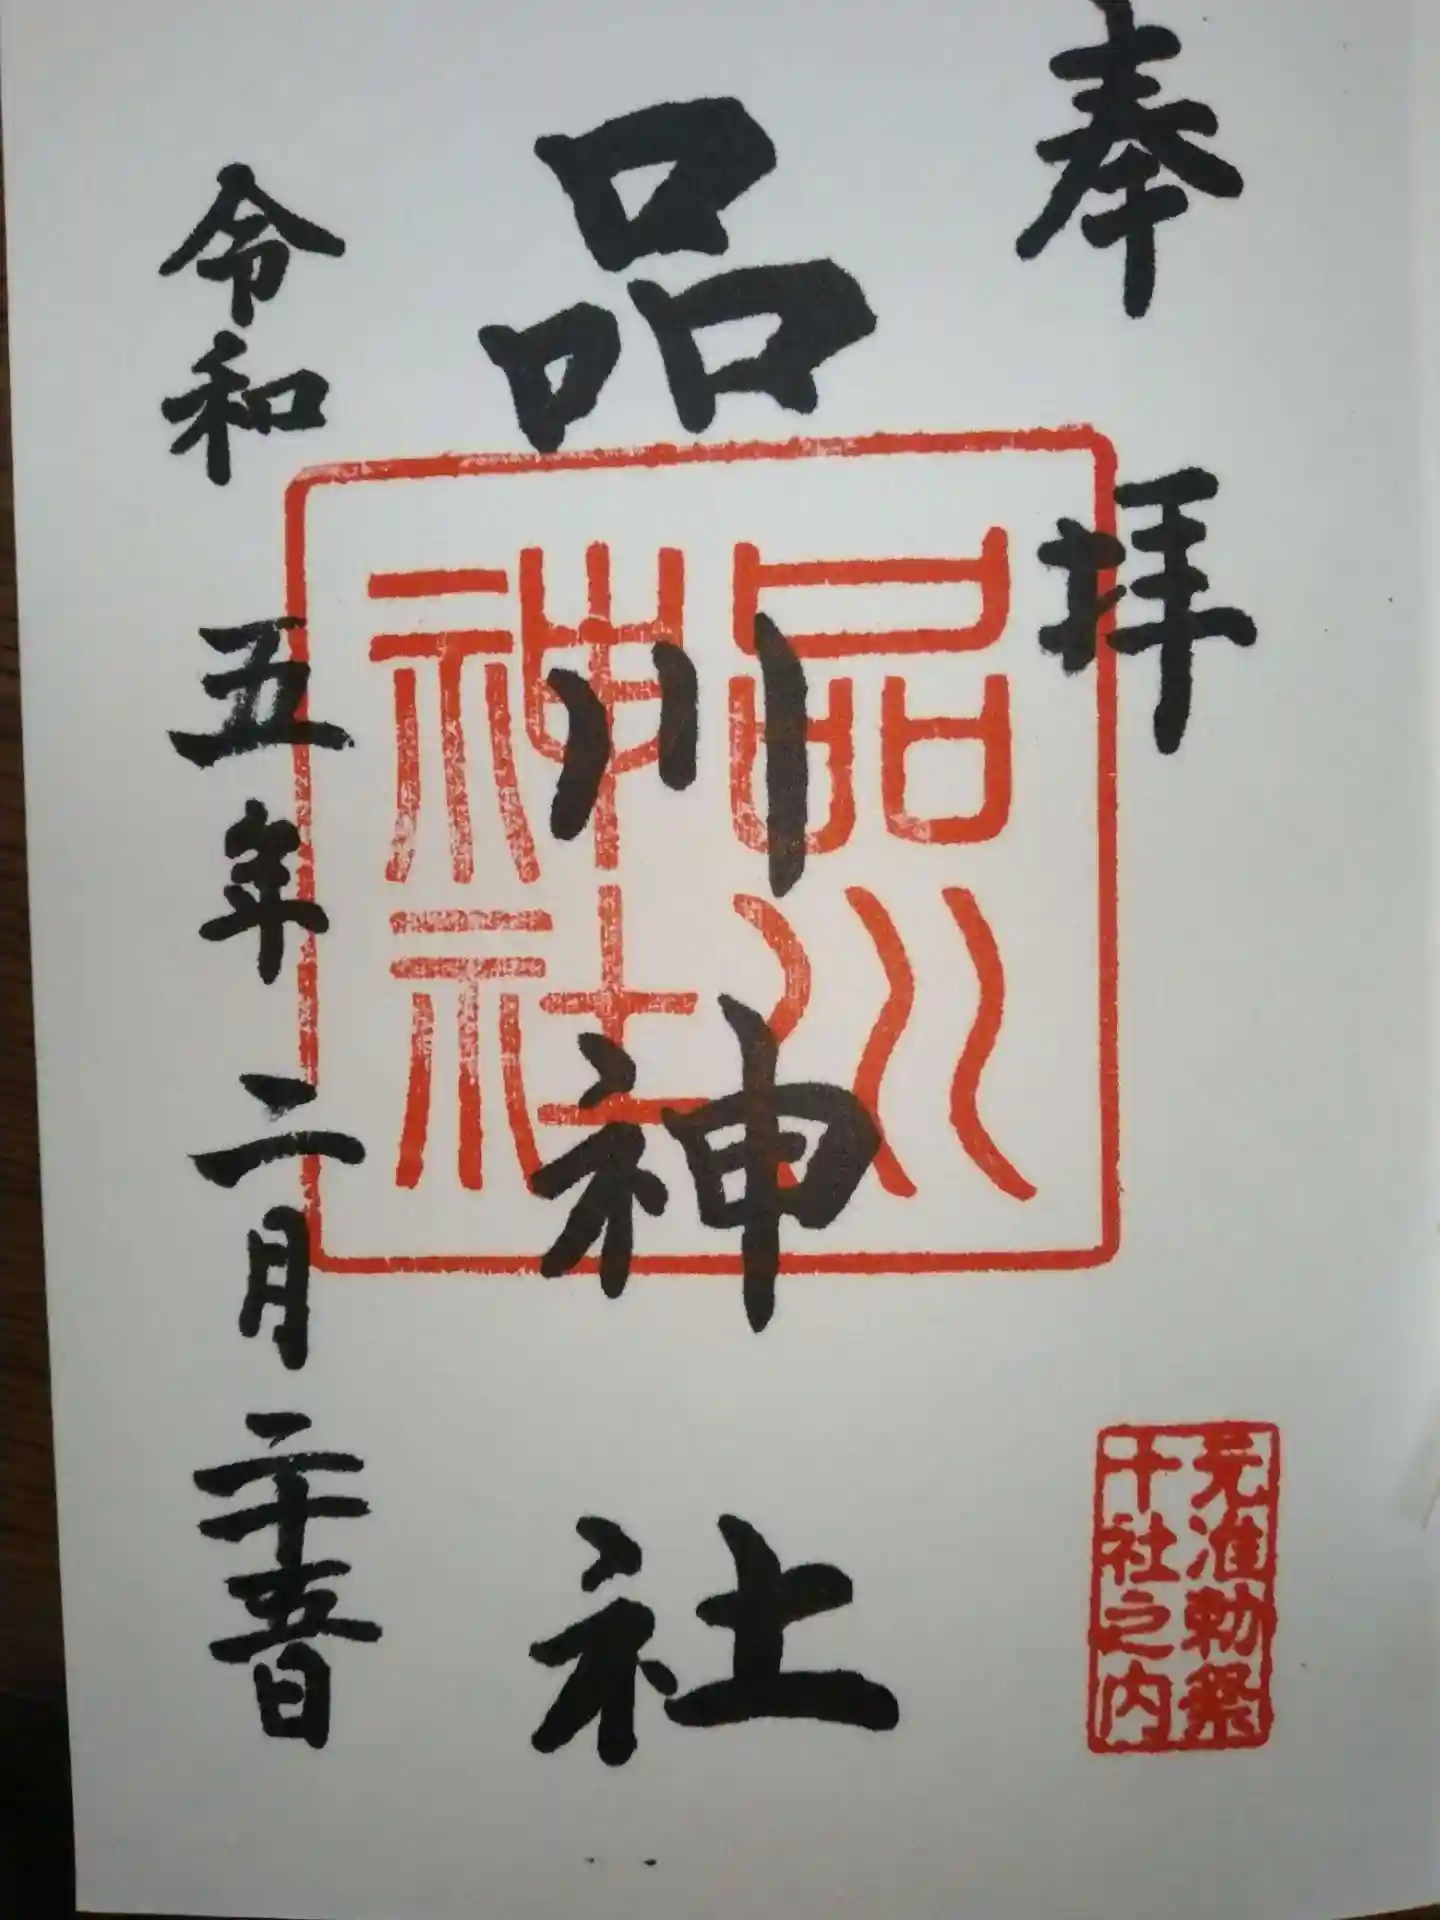 奉拝
品川神社
品川
神社
令和五年二月二十五日
元准勅祭
十社之内